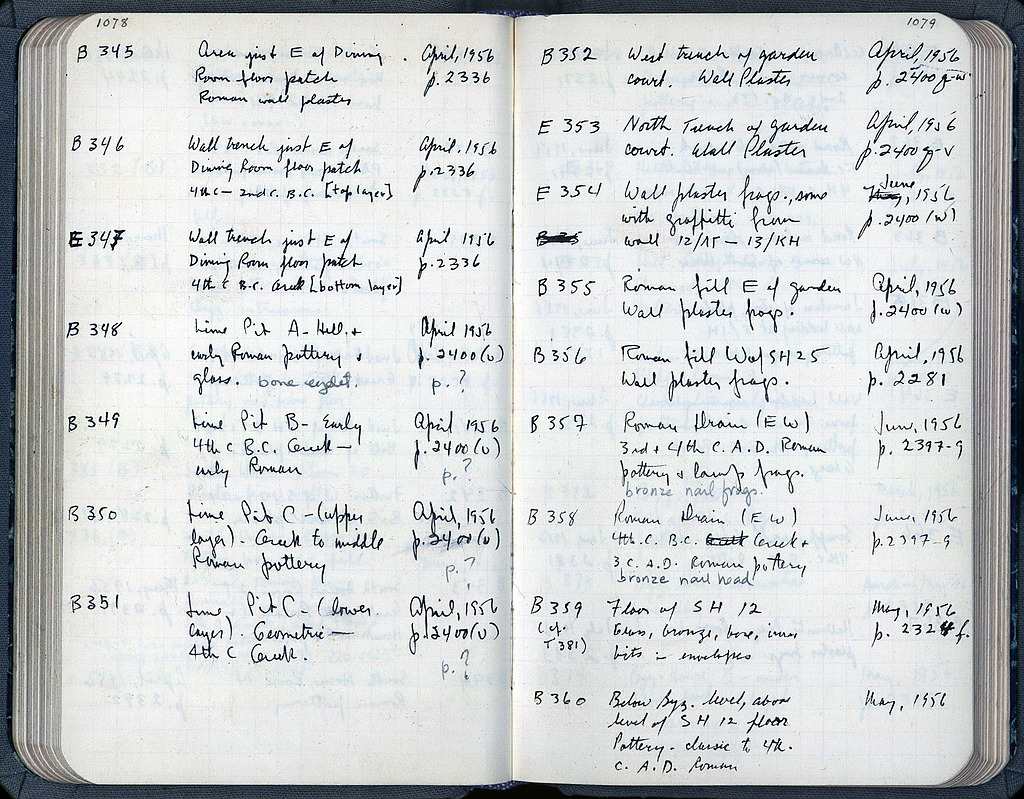 1078
B 345 Area just E of Dining . April, 1956
Room floor patch p. 2336
Roman wall plaster
B 346 Wall trench just E of April, 1956
Dining Room floor patch p. 2336
4th C – 2nd C. B.C. [top layer]
E 347 Wall trench just E of April 1956
Dining Room floor patch p. 2336
4th C B.C. Greek [bottom layer]
B 348 Lime Pit A - Hell. + April 1956
early Roman pottery & p. 2400 (U)
glass. bone p. ?
B 349 Lime Pit B - Early April 1956
4th C B.C. Greek – p. 2400 (U)
early Roman p. ?
B 350 Lime Pit C - (upper April, 1956
layer). Greek to middle p. 2400 (U)
Roman pottery p. ?
B 351 Lime Pit C. - (lower April, 1956
layer). Geometric – p. 2400 (U)
4th C Greek. p. ?
1079
B 352 West trench of garden April, 1956
court. Wall Plaster p. 2400
E 353 North Trench of garden April, 1956
court. Wall Plaster p. 2400 q-v
E 354 Wall plaster frags., some June, 1956
with graffitti from p. 2400 (W)
wall 12/15 – 13/KH
B 355 Roman fill E of garden April, 1956
Wall plaster frags. p. 2400 (W)
B 356 Roman fill W of SH 25 April, 1956
Wall plaster frags. p. 2281
B 357 Roman Drain (E W) June, 1956
3rd + 4th C. A.D. Roman p. 2397-9
pottery & lamp frags.
bronze nail frags.
B 358 Roman Drain (E W) June, 1956
4th. C. B.C. Greek + p. 2397-9
3 C. A.D. Roman pottery
bronze nail head
B 359 Floor of SH 12 May, 1956
(cf. Glass, bronze, bone, iron p. 2324 f.
T 381) bits in envelopes
B 360 Below Byz. level, above May, 1956
level of SH 12 floor
Pottery - classic to 4th.
C. A.D. Roman